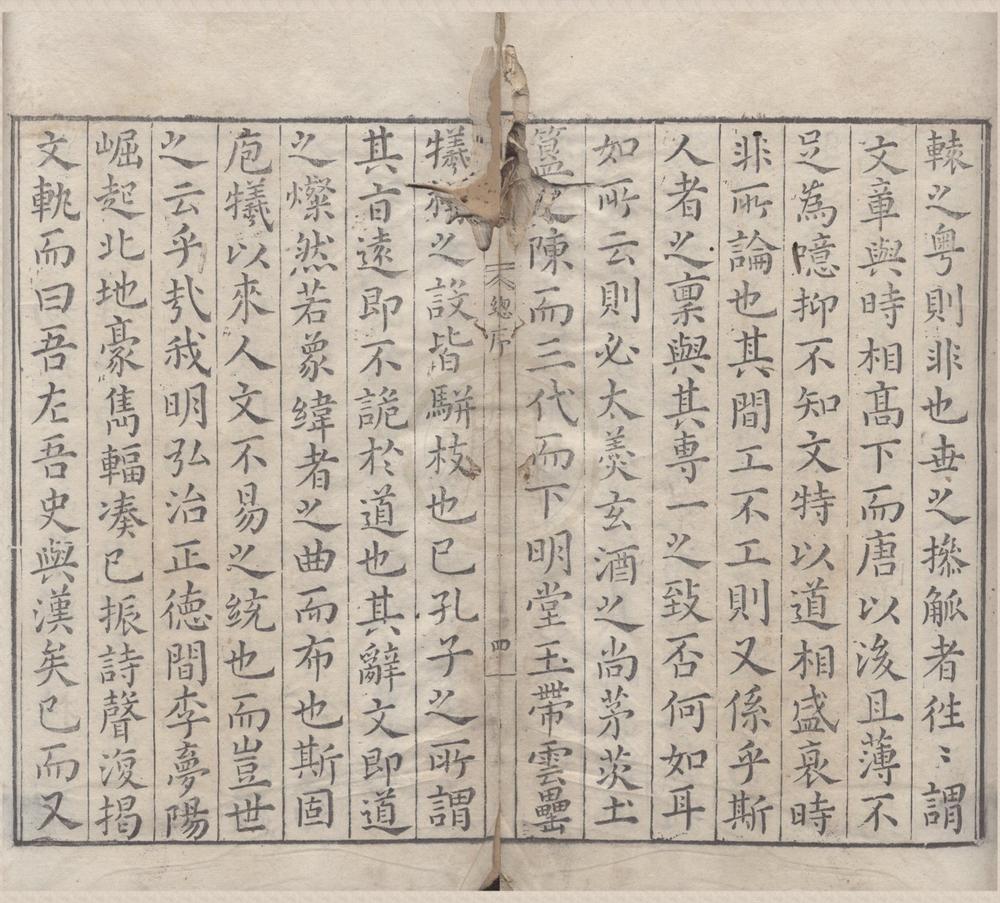 轅之粵則非也世之操觚者往〻謂
文章與時相高下而唐以後且薄不
足為噫抑不知文特以道相盛衰時
非所論也其間工不工則又係乎斯
人者之稟與其專一之致否何如耳
如所云則必太羹玄酒之尚茅茨土
簋之陳而三代而下明堂玉帶雲罍
總序
四
犧之設皆駢枝也已孔子之所謂
其旨遠即不詭於道也其辭文即道
之燦然若象緯者之曲而布也斯固
庖犧以來人文不易之統也而豈世
之云乎哉我明弘治正德間李夢陽
崛起北地豪雋輻湊已振詩聲復揭
文軌而曰吾左吾史與漢矣已而又